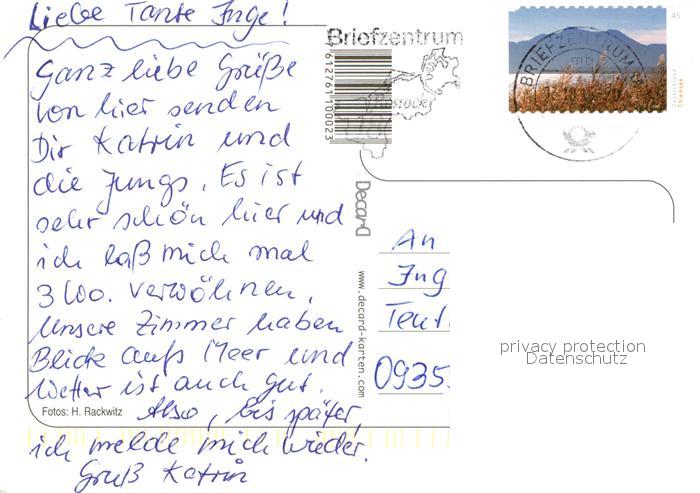 Liebe Tante Inge!
Ganz liebe Grüße
von hier senden
Dir Katrin und
die Jungs. Es ist
sehr schön hier und
ich laß mich mal
3 Wo. verwöhnen.
Unsere Zimmer haben
Blick aufs Meer und
Wetter ist auch gut.
Also, bis später,
ich melde mich wieder.
Gruß Katrin
Fotos: H. Rackwitz
Briefzentrum
612761100023
ROSTOCK
Decard
www.decard-karten.com
BRIEFZENTRUM
45
Deutschland
Chiemsee
An
Ing
Teut
0935
privacy protection
Datenschutz